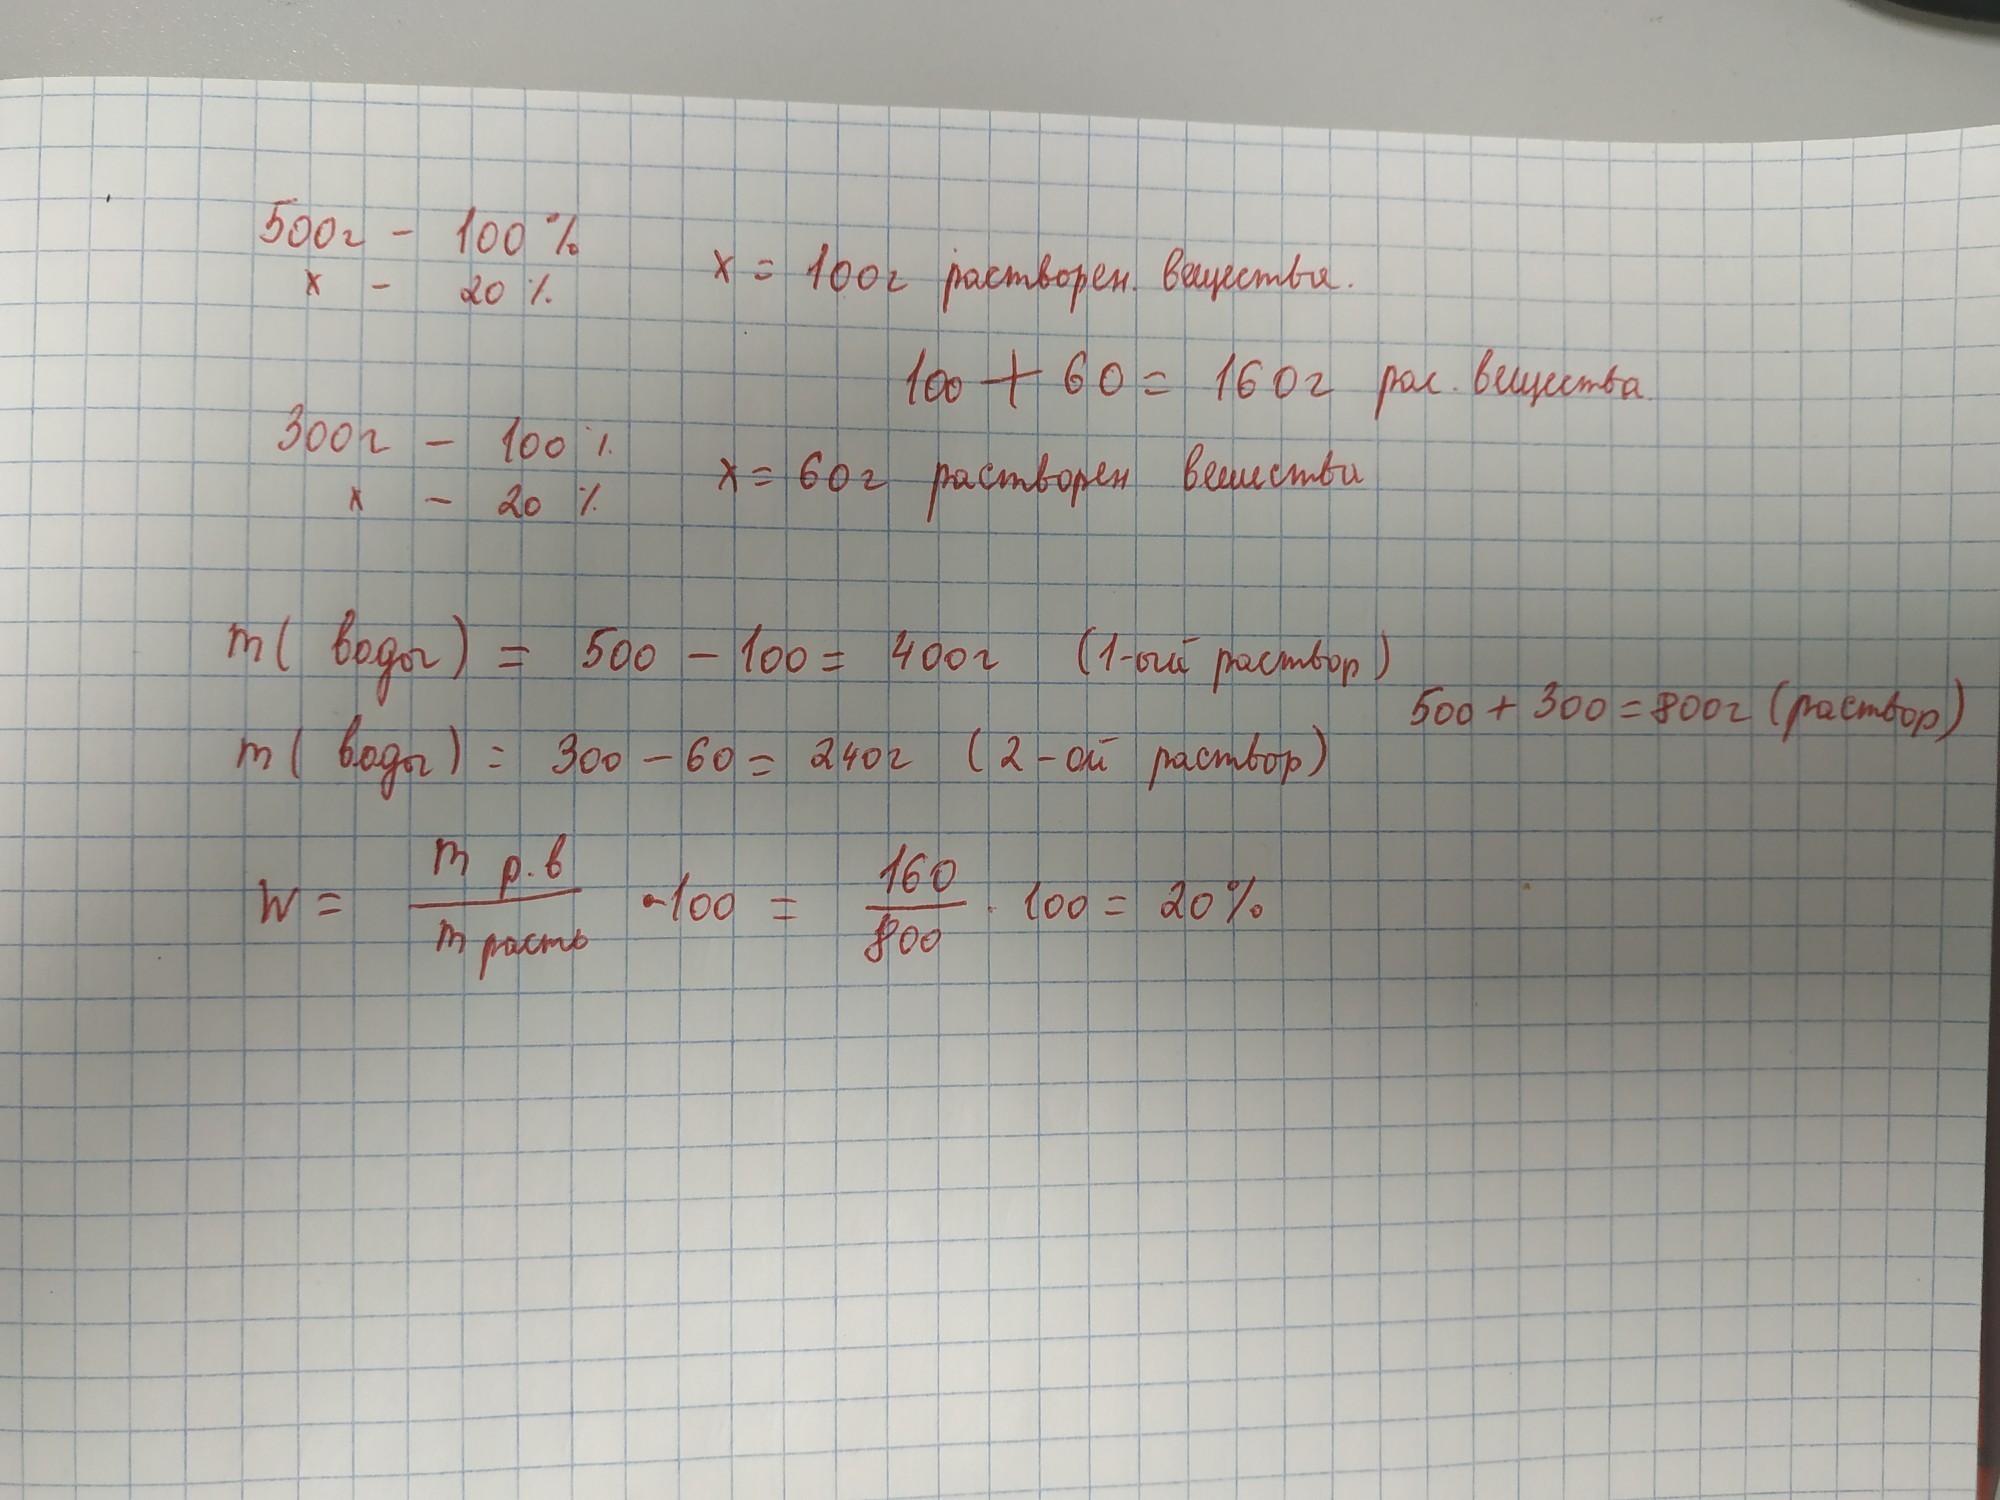 500г - 100%
x = 100г растворен. вещества.
x - 20%
100 + 60 = 160г рас. вещества.
300г - 100%
x = 60г растворен вещества
x - 20%
m( воды) = 500 - 100 = 400г (1-ый раствор)
500 + 300 = 800г (раствор)
m( воды) = 300 - 60 = 240г (2-ой раствор)
W = m р.в / m раств ·100 = 160 / 800 · 100 = 20%